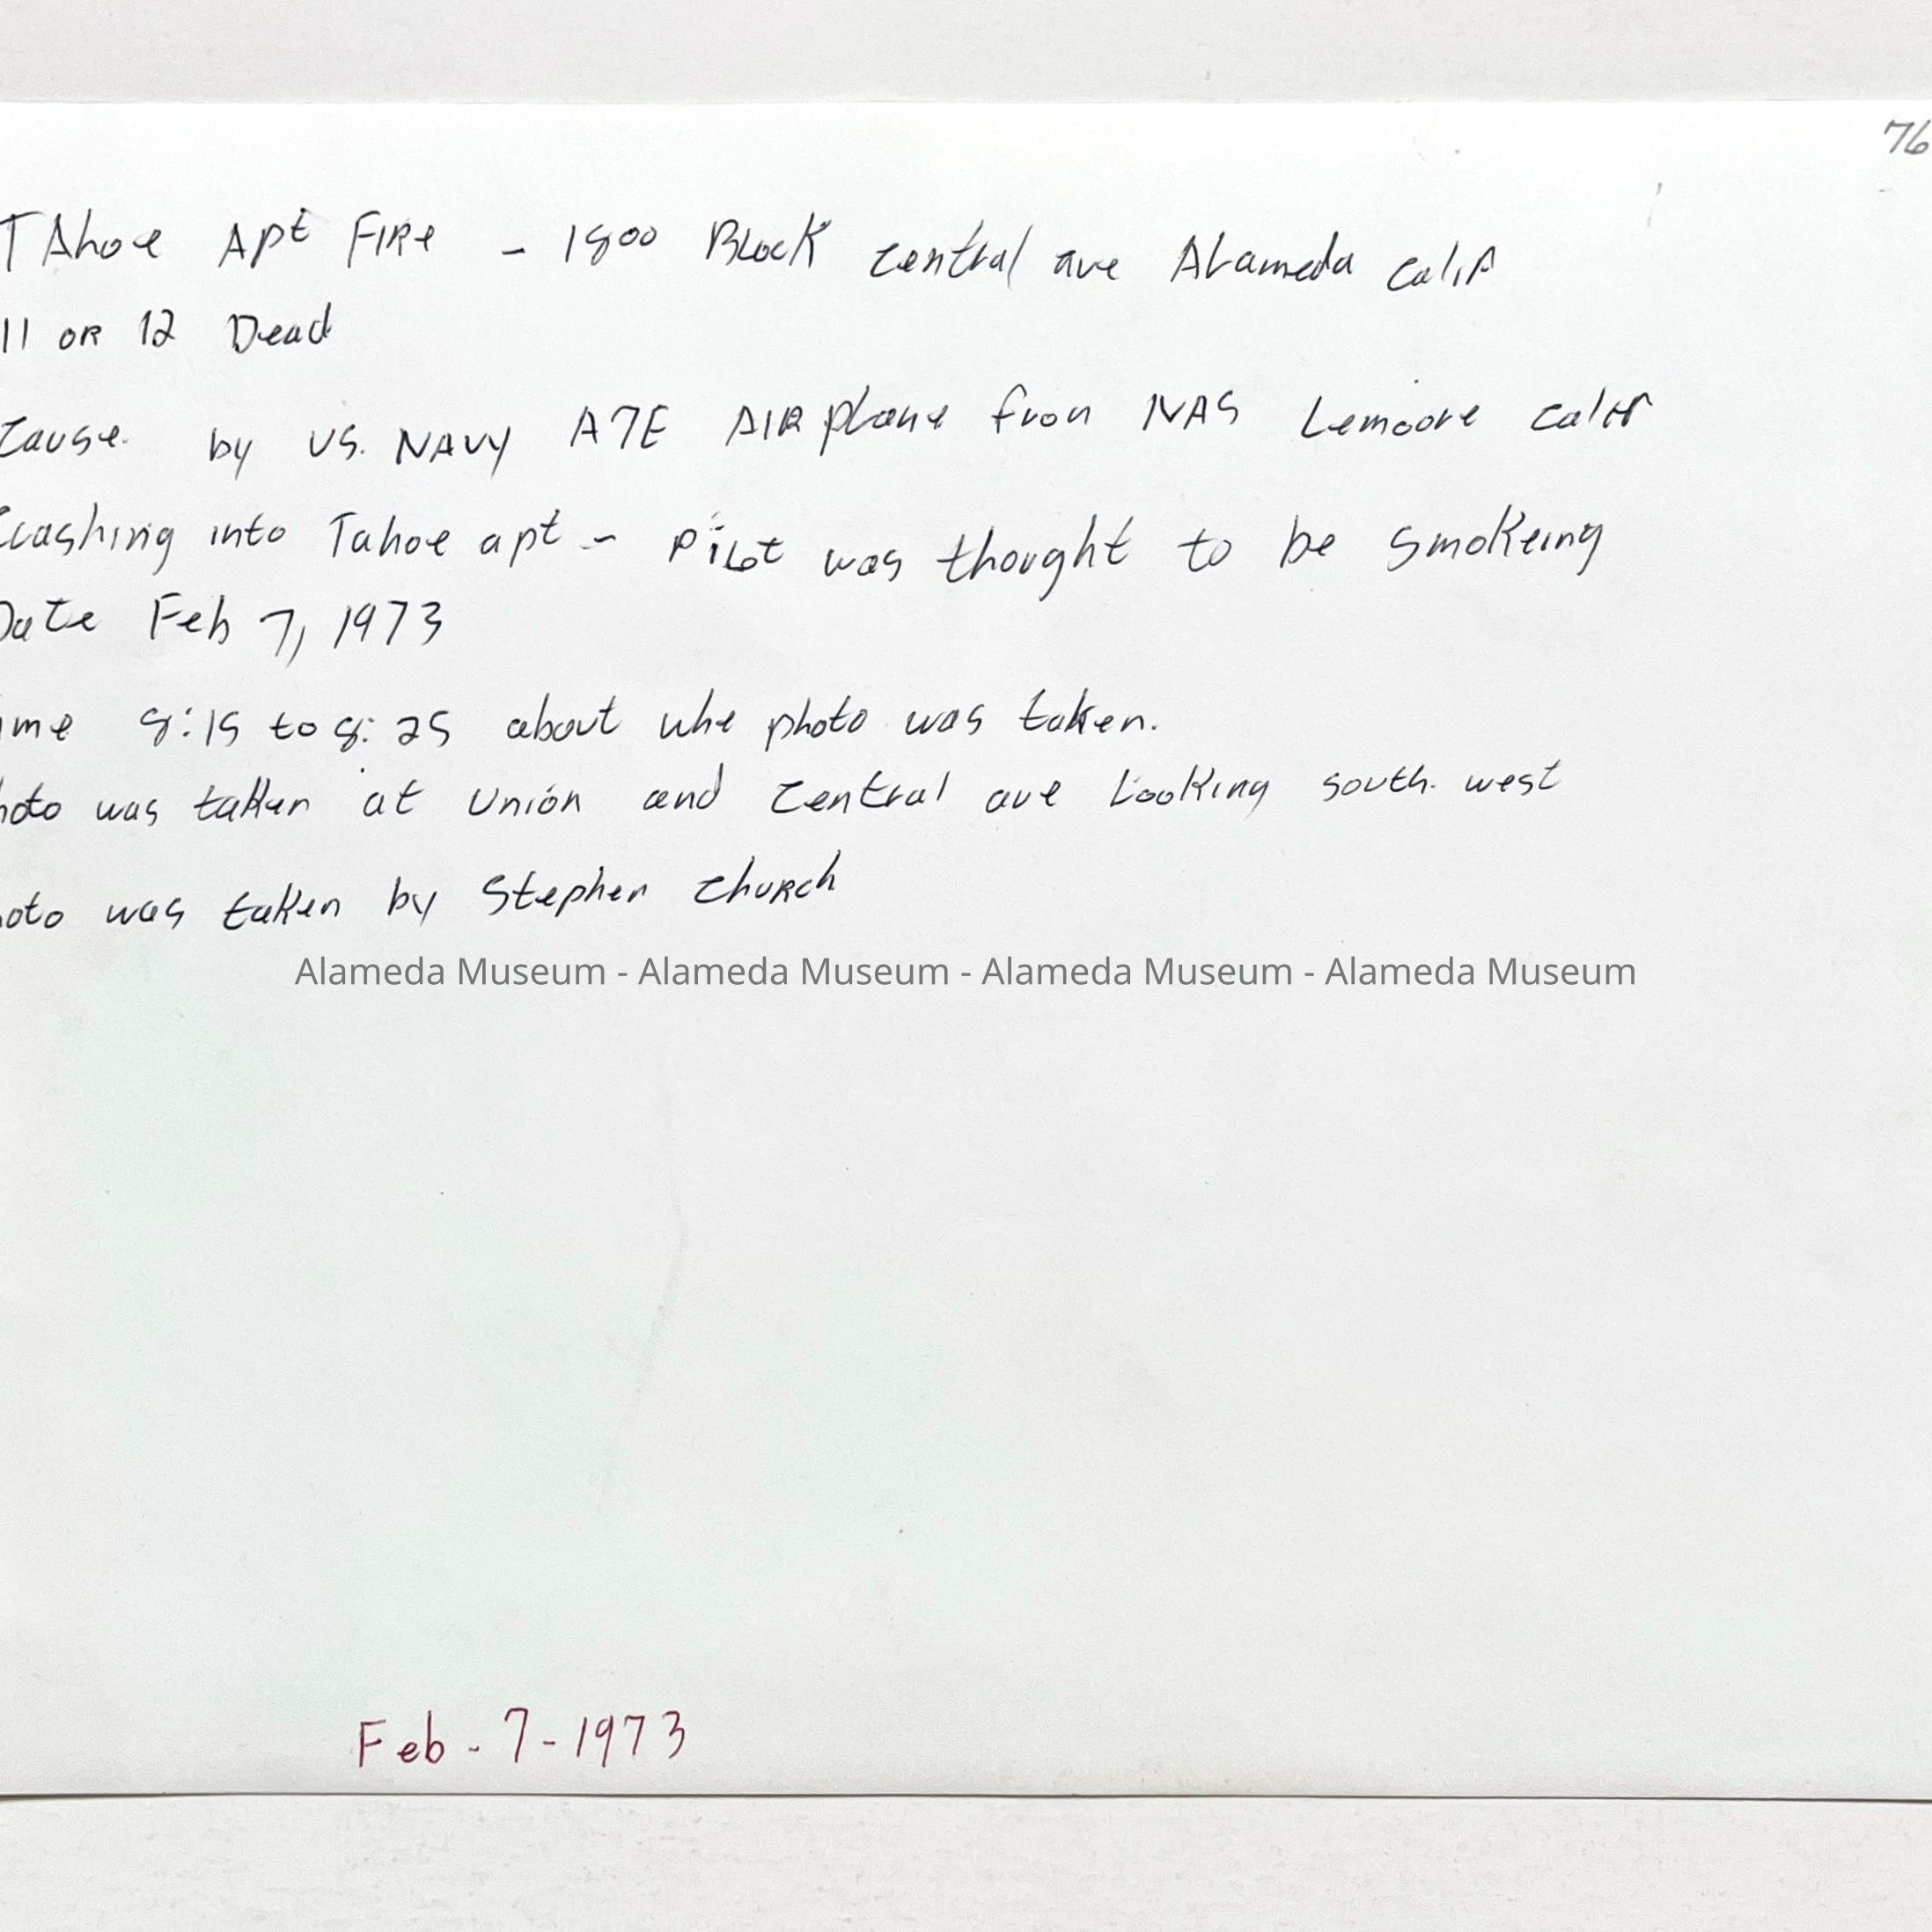 76
TAhoe Apt FIRe - 1800 Block central ave Alameda calif
11 or 12 Dead
cause. by US. NAVY A7E AIRplane fron NAS Lemoore calif
crashing into Tahoe apt - Pilot was thought to be smokeing
Date Feb 7, 1973
ime 8:15 to 8:25 about whe photo was taken.
hoto was taken at Union and central ave Looking south. west
oto was taken by Stephen church
Alameda Museum - Alameda Museum - Alameda Museum - Alameda Museum
Feb - 7 - 1973